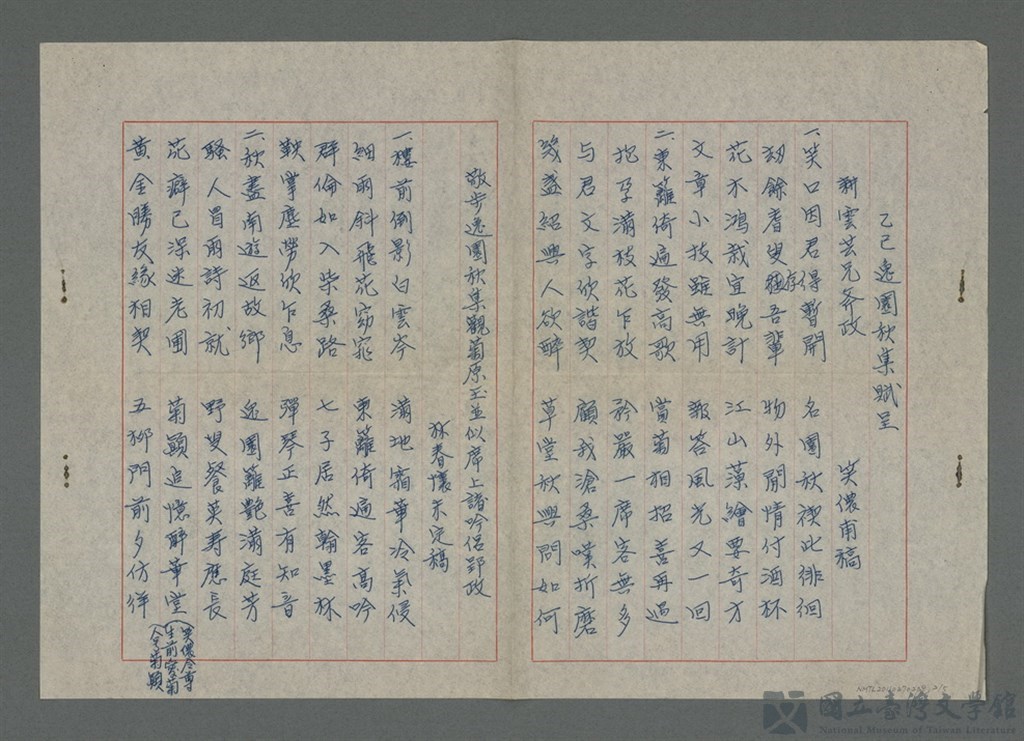 乙巳逸園秋集賦呈
耕雲芸兄斧政　笑儂甫稿
一、笑口因君得暫開　名園秋禊此徘徊
劫餘耆叟存吾輩　物外閒情付酒杯
花木鴻栽宜晚計　江山藻繪要奇才
文章小技雖無用　報答風光又一回
二、東籬倚遍發高歌　賞菊相招喜再過
抱孕滿枝花乍放　矜嚴一席客無多
与君文字欣諧契　顧我滄桑嘆折磨
幾盞紹興人欲醉　草堂秋興問如何
敬步逸園秋集觀菊原玉並似席上諸吟侶郢政
林春懷未定稿
一、樓前倒影白雲岑　滿地霜華冷氣侵
細雨斜飛花窈窕　東籬倚遍客高吟
群倫如入柴桑路　七子居然翰墨林
鞅掌塵勞欣乍息　彈琴正喜有知音
二、秋盡南遊返故鄉　逸園籬艷滿庭芳
騷人冒雨詩初就　野叟餐英壽應長
花癖已深迷老圃　菊顛追憶醉華堂
黃金勝友緣相契　五柳門前夕彷徉
（笑儂令尊
生前愛菊
人号菊顛
NMTL
國立臺灣文學館
National Museum of Taiwan Literature